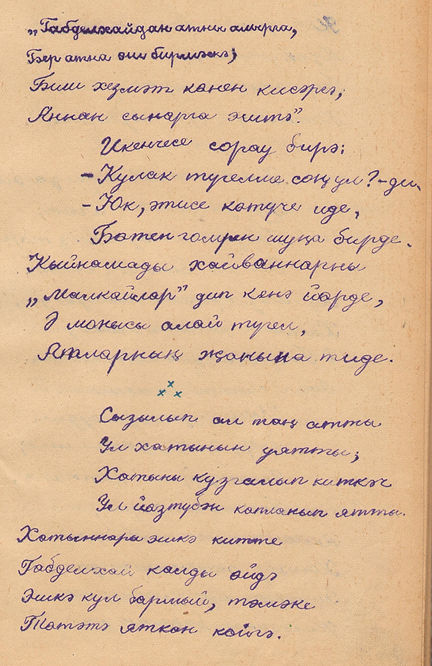 „Габделхайдан атны алырга,
Бер атна эш бирмәскә;
Биш хезмәт көнен кисәргә,
Аннан сынарга эштә".
Икенчесе сорау бирә:
– Кулак түгелме соң ул? – ди.
– Юк, әтисе көтүче иде,
Бөтен гомрен шуңа бирде.
Кыйнамады хайваннарны
„Малкайлар" дип кенә йөрде,
Ә монысы алай түгел,
Атларның җанына тиде.
× × ×
Сызылып ал таң атты
Ул хатынын уятты;
Хатыны кузгалып киткәч
Ул йөзтүбән капланып ятты.
Хатыннары эшкә китте
Габделхәй калды өйдә
Эшкә кул бармый, тәмәке
Тәтәтә яткан көйгә.